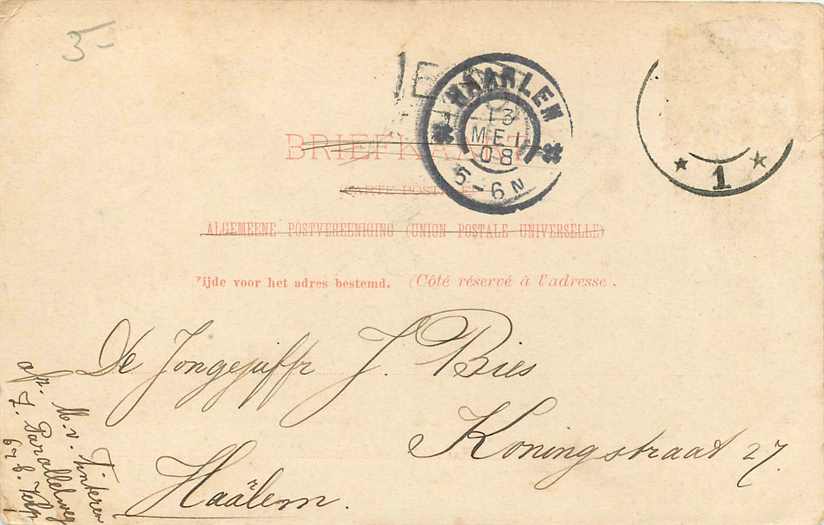 5-
HAARLEM
13
MEI
08
5-6N
1
BRIEFKAART
CARTE POSTALE
ALGEMEENE POSTVEREENIGING (UNION POSTALE UNIVERSELLE)
Zijde voor het adres bestemd. (Côté réservé à l'adresse.
De Jongejuffr J. Bies
Koningstraat 27.
Haälem.
afz. M. v. Tinteren